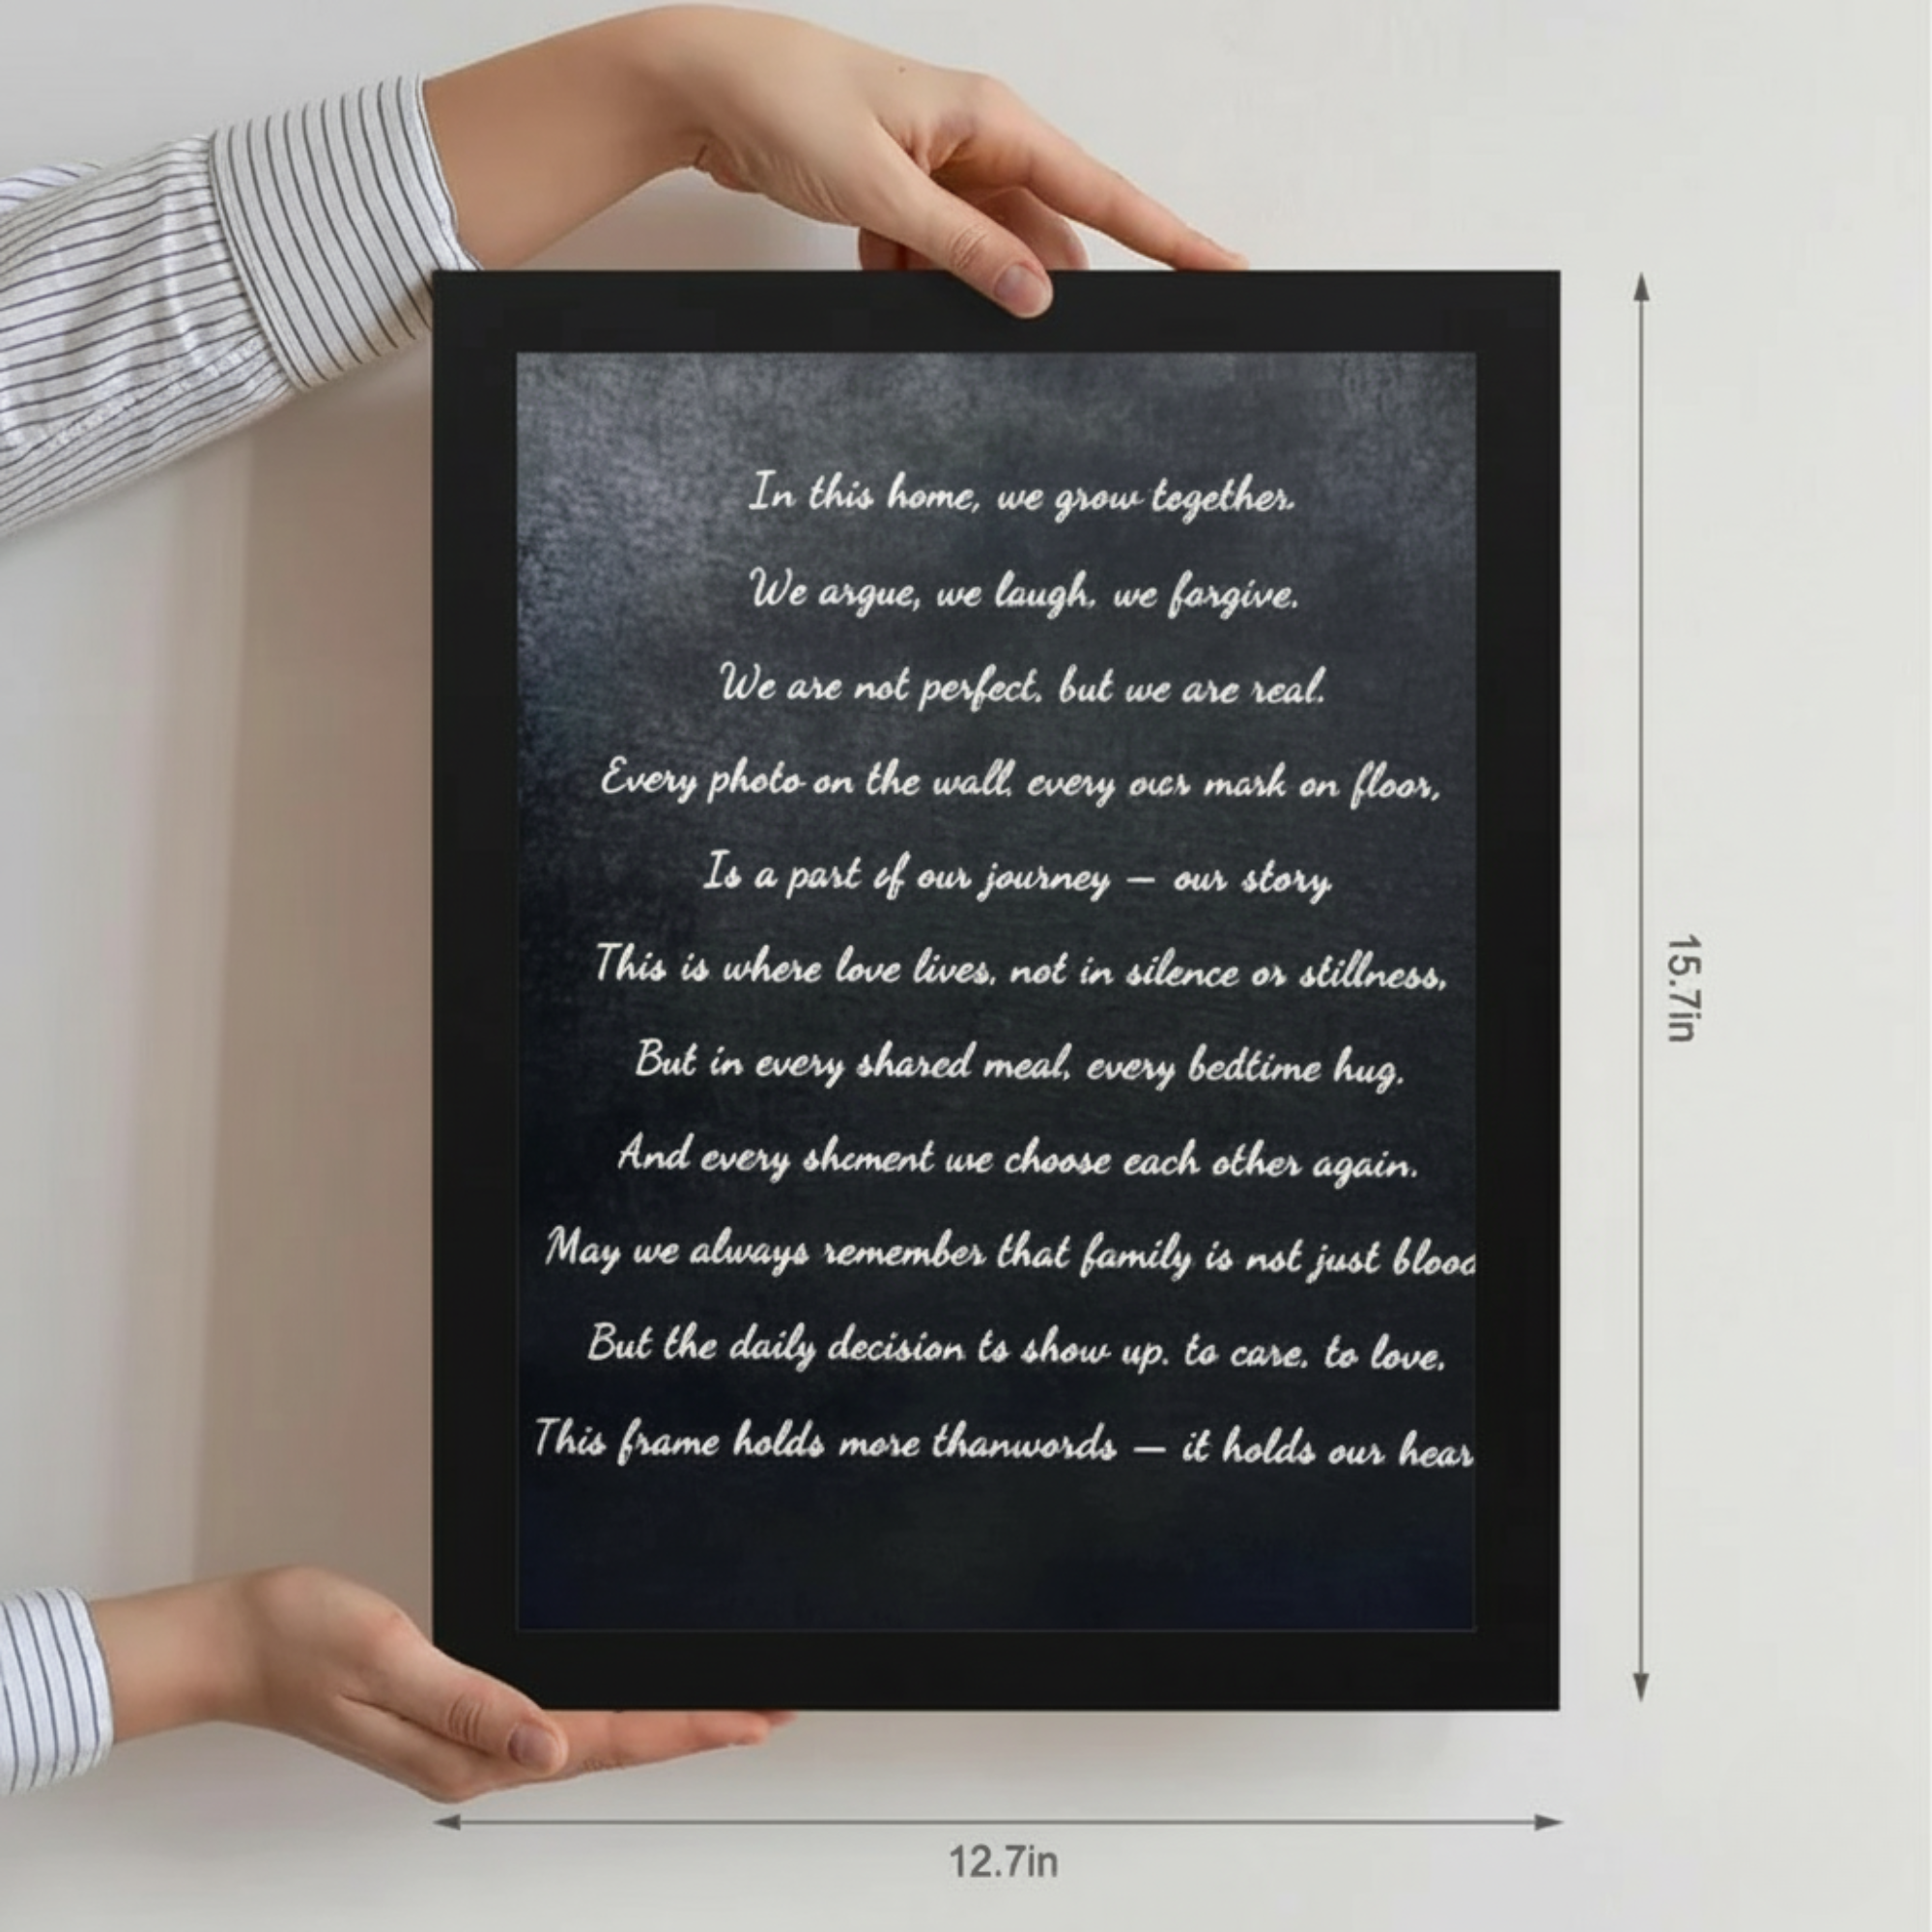 In this home, we grow together.
We argue, we laugh. we forgive.
We are not perfect. but we are real.
Every photo on the wall, every our mark on floor,
Is a part of our journey — our story
This is where love lives, not in silence or stillness,
But in every shared meal, every bedtime hug.
And every shcment we choose each other again.
May we always remember that family is not just blood
But the daily decision to show up. to care. to love.
This frame holds more thanwords — it holds our hear
15.7in
12.7in